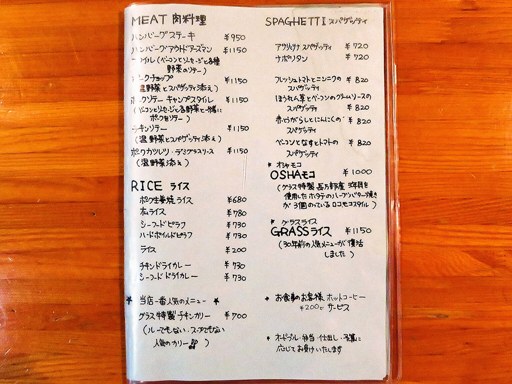 MEAT 肉料理
ハンバーグステーキ ¥950
ハンバーグアウトドアーズマン ¥1150
スタイル(ベーコンとりんごと各種
野菜のソテー)
ポークチョップ ¥1150
(温野菜とスパゲッティ添え)
ポークソテー キャンプスタイル ¥1150
チキンソテー ¥1150
(温野菜とスパゲッティ添え)
ポークカツレツ・デミグラスソース ¥1150
(温野菜添え)
RICE ライス
ポーク生姜焼ライス ¥680
ライス ¥780
シーフードピラフ ¥730
ハードボイルドピラフ ¥730
ライス ¥200
チキンドライカレー ¥730
シーフードドライカレー ¥730
* 当店一番人気のメニュー *
グラス特製チキンカリー ¥700
(ルーでもない・スープでもない
人気のカリー)
SPAGHETTI スパゲッティ
スパゲッティ ¥720
ナポリタン ¥720
フレッシュトマトとニンニクの ¥820
スパゲッティ
ほうれん草とベーコンのクリームソースの ¥820
スパゲッティ
赤とうがらしとにんにくの ¥820
スパゲッティ
ベーコンとなすとトマトの ¥820
スパゲッティ
* オシャモコ
OSHAモコ ¥1000
(グラス特製 長万部産
使用したホタテの バター焼き
が3個のっているロコモコスタイル)
* グラスライス
GRASSライス ¥1150
(30年前の人気メニューが復活
しました)
* お食事のお客様 ホットコーヒー
¥200でサービス
* オードブル・弁当・仕出し・予算に
応じてお受けいたします